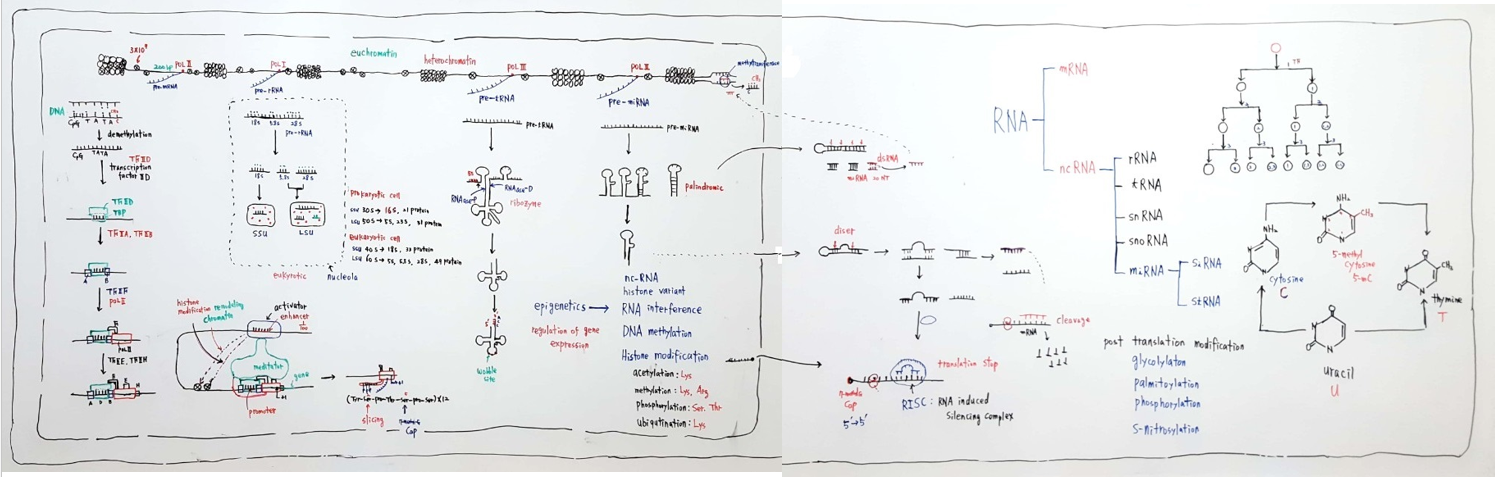 3X10⁹
200bp
POL II
pre-mRNA
POL I
pre-rRNA
euchromatin
heterochromatin
POL III
pre-tRNA
POL II
pre-miRNA
methyltransferase
CH₃
C
DNA
CpG T A T A
demethylation
CpG TATA
TFIID
transcription
factor IID
TFIID
TBP
TFIIA, TFIIB
A B
TFIIF
POL II
POL II
TFIIE, TFIIH
A D B
18S 5.8S 28S
pre-rRNA
18S 5.8S 28S
SSU
LSU
eukyrotic
nucleola
prokaryotic cell
SSU 30S → 16S, 21 protein
LSU 50S → 5S, 23S, 31 protein
eukaryotic cell
SSU 40S → 18S, 33 protein
LSU 60S → 5S, 5.8S, 28S, 49 protein
histone
modification
remodeling
chromatin
activator
enhancer
mediator
gene
promoter
(Tyr-Ser-pro-Thr-Ser-pro-Ser)X52
slicing
Cap
pre-tRNA
RNAase-P
RNAase-D
ribozyme
wobble
site
pre-miRNA
palindromic
nc-RNA
histone variant
epigenetics → RNA interference
regulation of gene
expression
DNA methylation
Histone modification
acetylation: Lys
methylation: Lys, Arg
phosphorylation: Ser, Thr
ubiquitination: Lys
dsRNA
miRNA 20 NT
dicer
cleavage
mRNA
translation stop
Cap
5'→5'
RISC: RNA induced
Silencing complex
RNA
mRNA
ncRNA
rRNA
tRNA
snRNA
snoRNA
miRNA
SiRNA
StRNA
post translation modification
glycolylaton
palmitoylation
phosphorylation
S-nitrosylation
NH₂
cytosine
C
NH₂
CH₃
5-methyl
cytosine
5-mC
CH₃
thymine
T
uracil
U